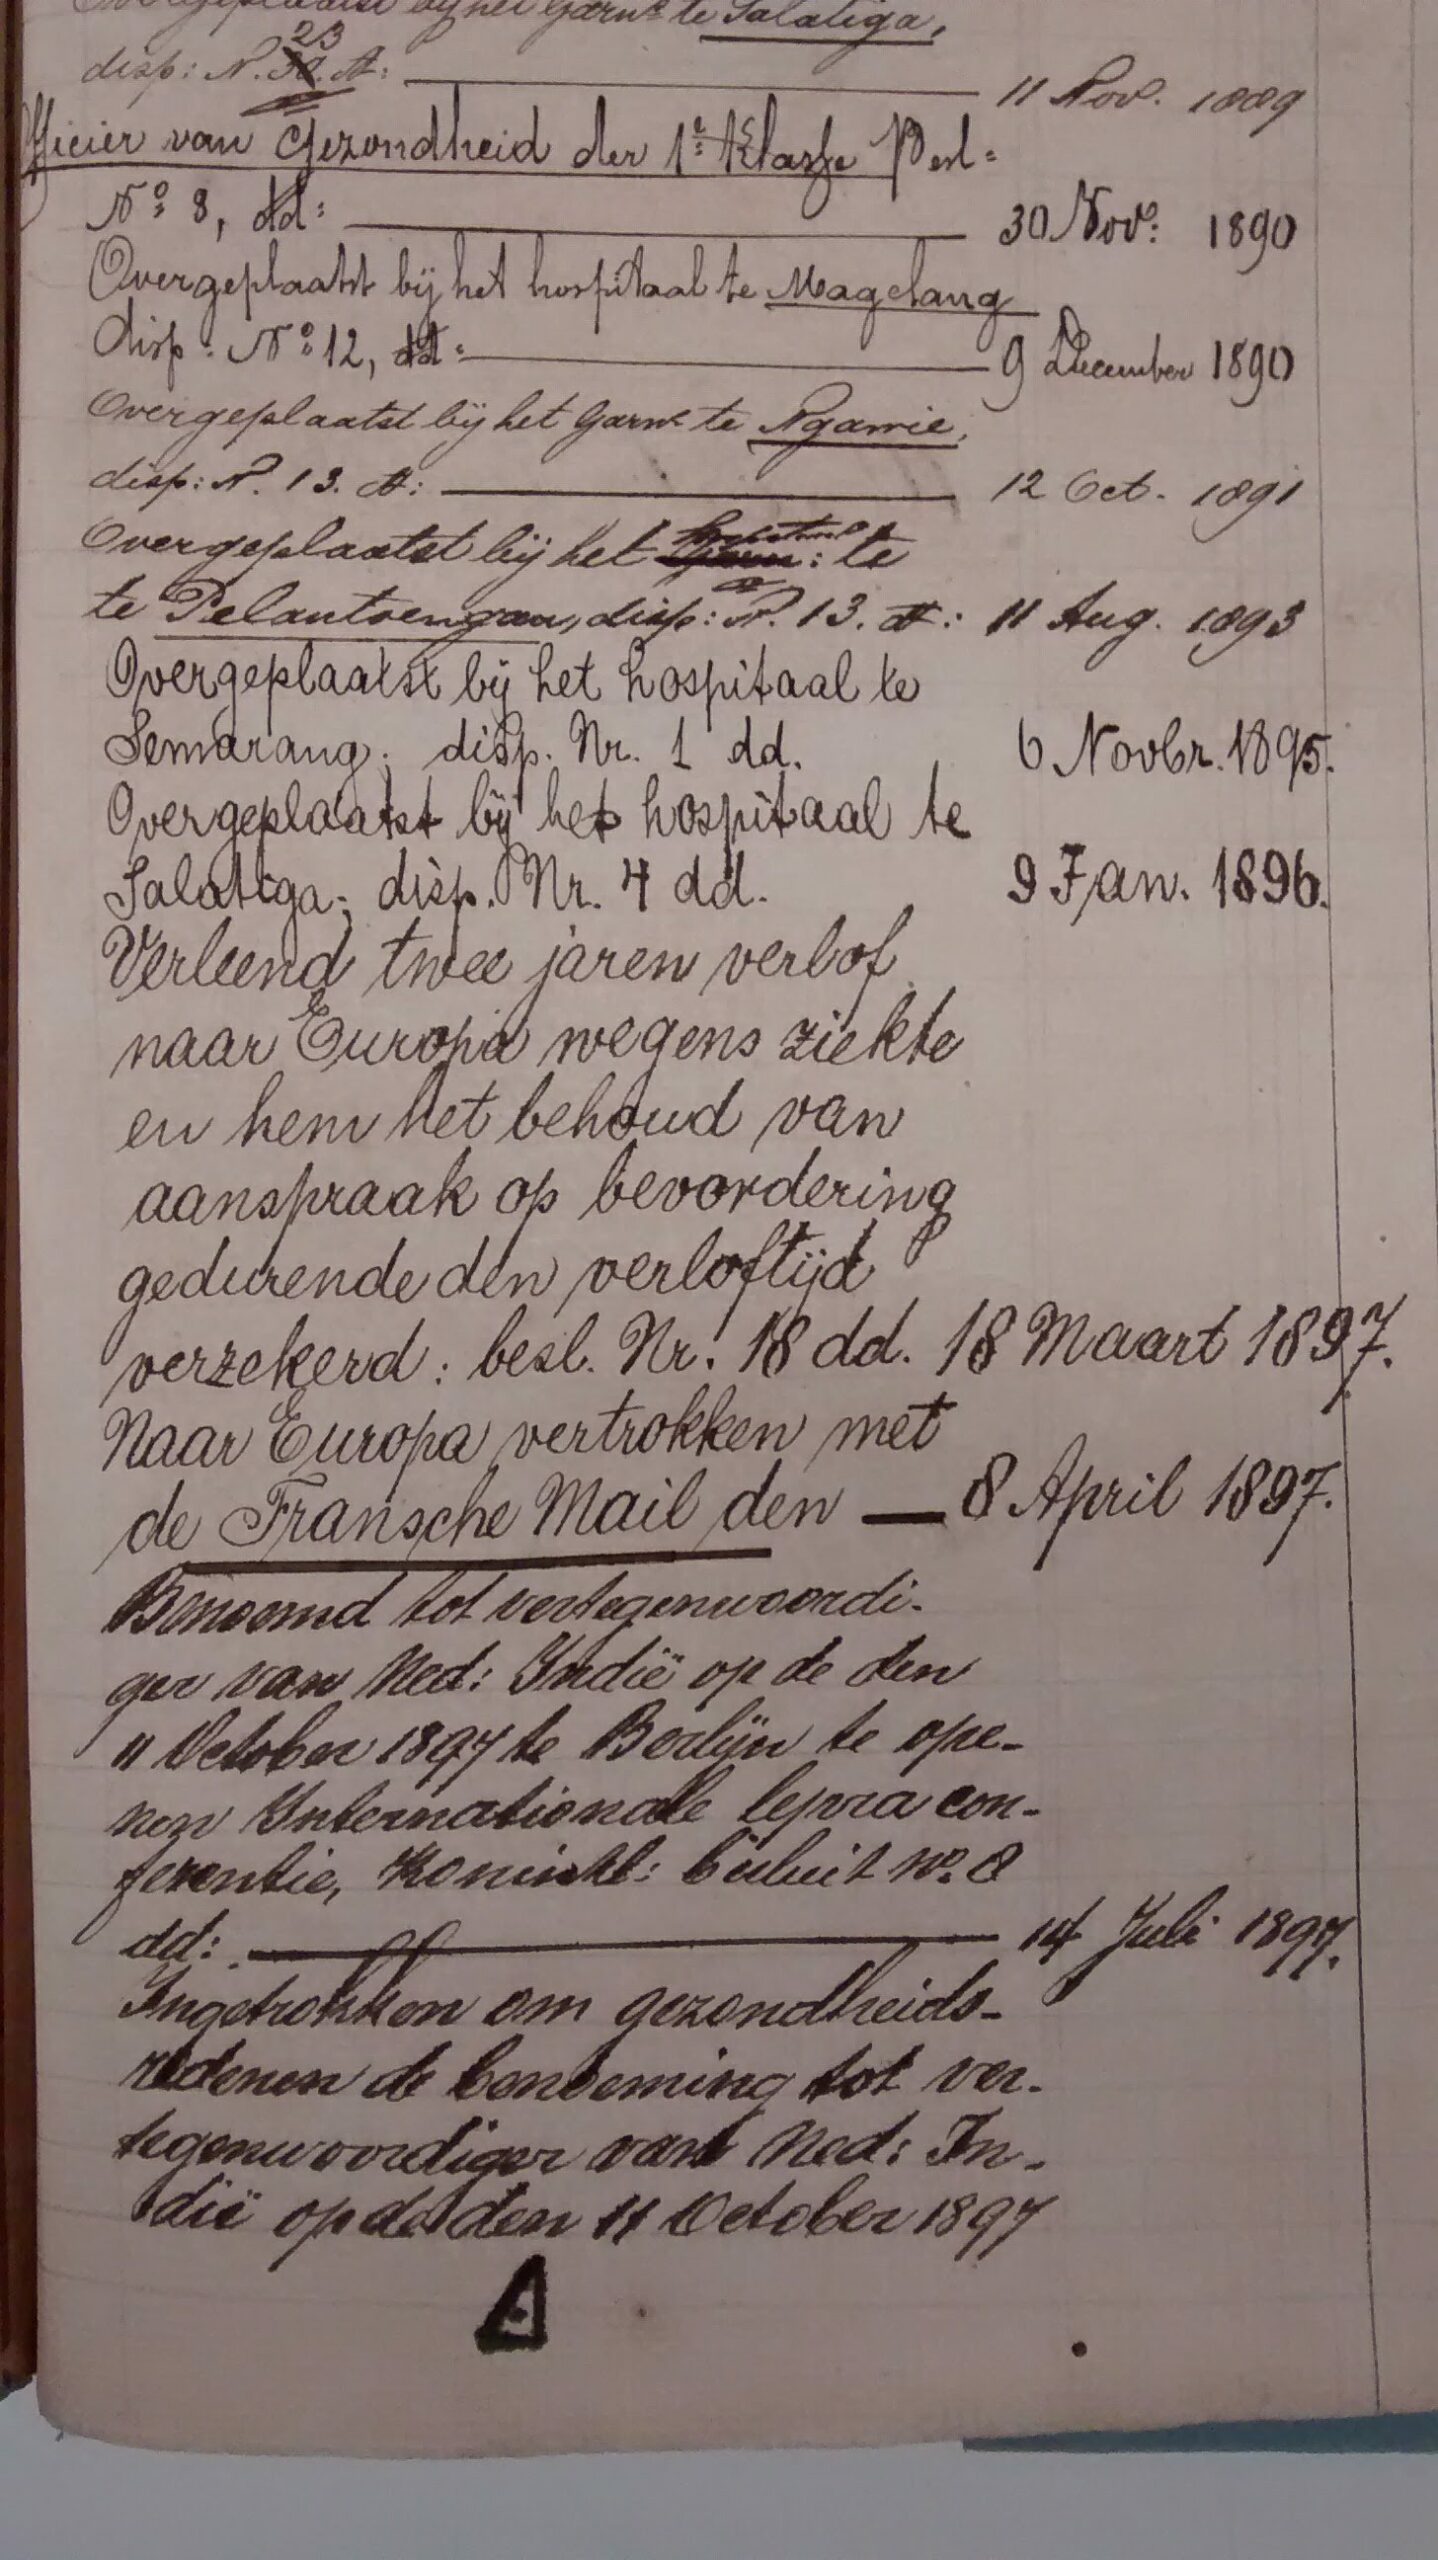 Overgeplaatst bij het Garn: te Salatiga,
disp: N. 23 A: 11 Nov. 1889
Officier van Gezondheid der 1e Klasse Besl:
No 8, dd: 30 Nov: 1890
Overgeplaatst bij het hospitaal te Magelang
disp: No 12, dd: 9 December 1890
Overgeplaatst bij het Garn. te Ngawie,
disp: N. 13. dt: 12 Oct. 1891
Overgeplaatst bij het hospitaal te
te Pelantoengan, disp: N. 13. dt: 11 Aug. 1893
Overgeplaatst bij het hospitaal te
Semarang; disp. Nr. 1 dd. 6 Novbr. 1895.
Overgeplaatst bij het hospitaal te
Salatiga; disp. Nr. 4 dd. 9 Jan. 1896.
Verleend twee jaren verlof
naar Europa wegens ziekte
en hem het behoud van
aanspraak op bevordering
gedurende den verloftijd
verzekerd: besl. Nr. 18 dd. 18 Maart 1897.
Naar Europa vertrokken met
de Fransche Mail den — 8 April 1897.
Benoemd tot vertegenwoordi-
ger van Ned: Indië op de den
11 October 1897 te Berlijn te ope-
nen Internationale lepra con-
ferentie, Koninkl: besluit No. 8
dd: 14 Juli 1897.
Ingetrokken om gezondheids-
redenen de benoeming tot ver-
tegenwoordiger van Ned: In-
dië op de den 11 October 1897